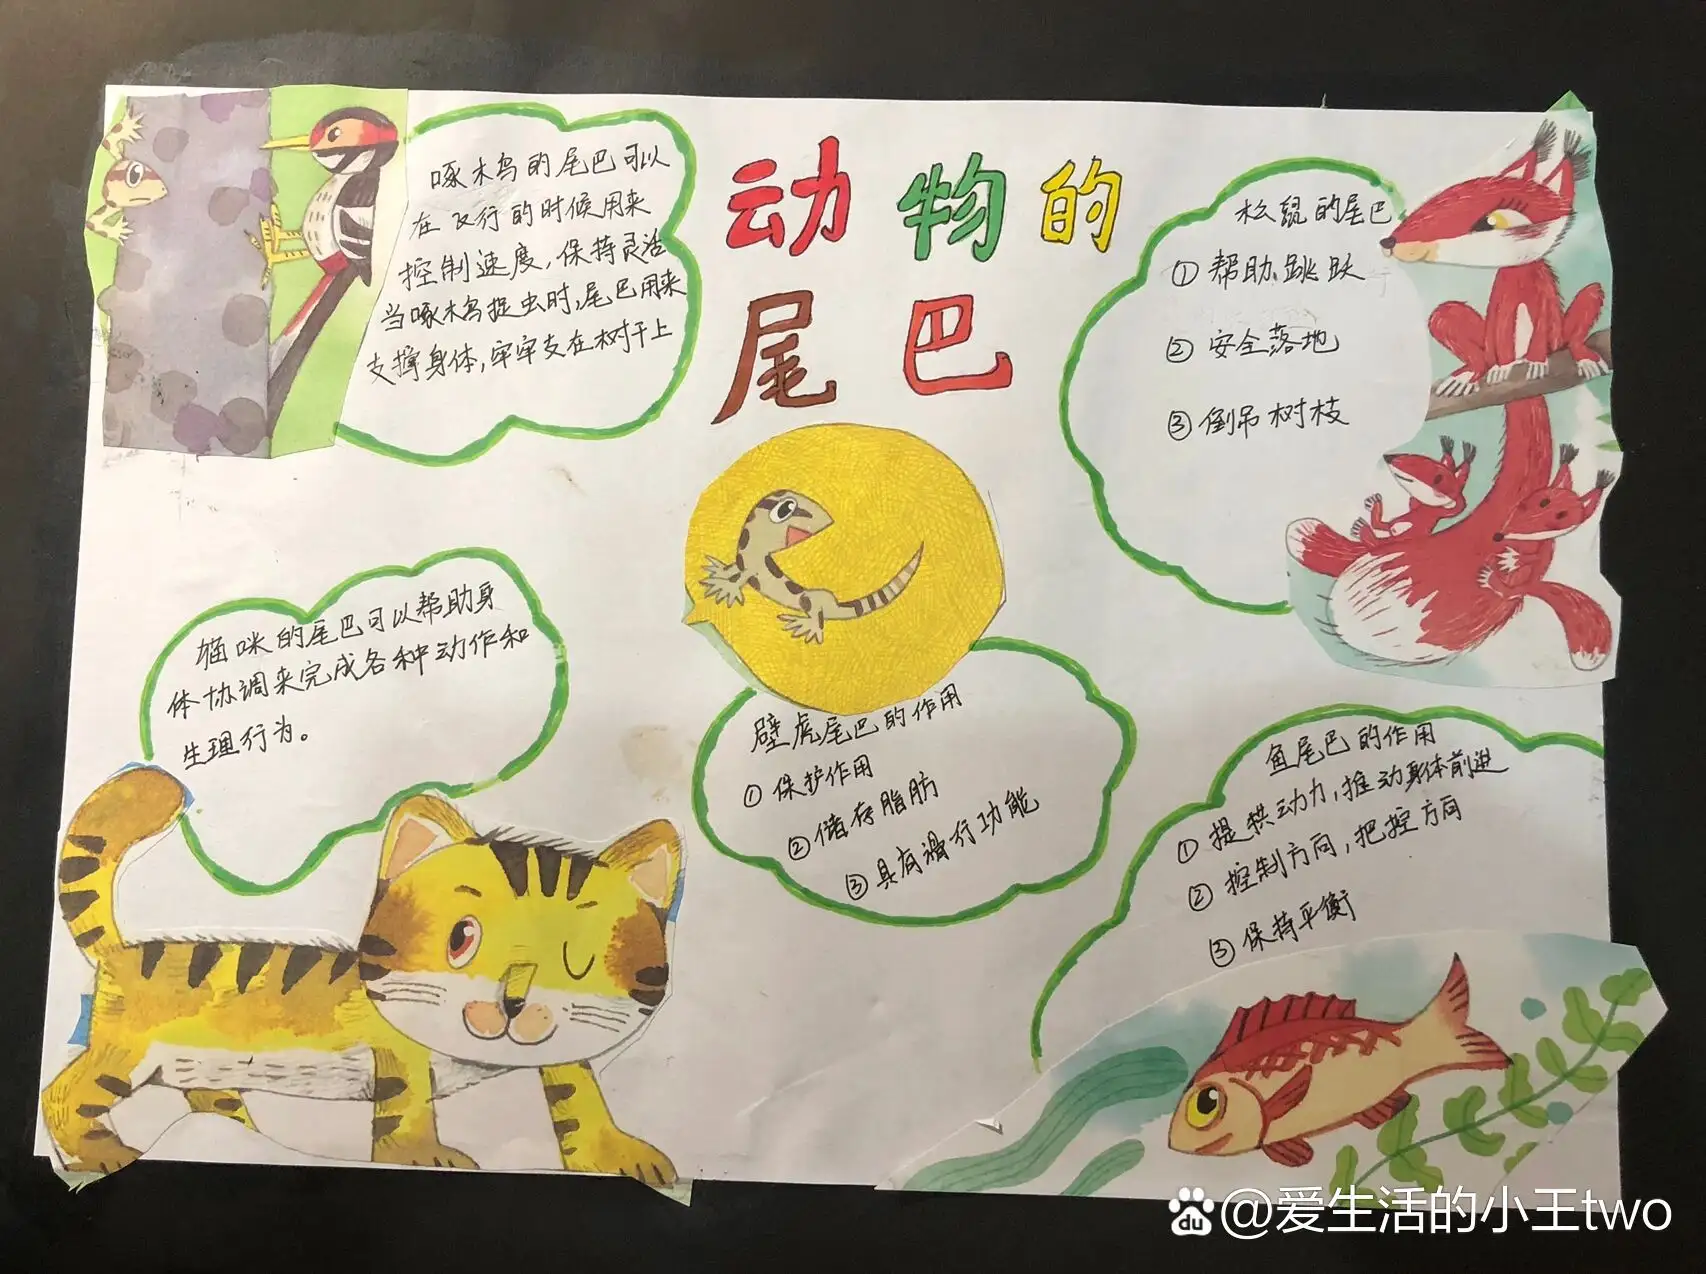 动物的
尾巴
啄木鸟的尾巴可以
在飞行的时候用来
控制速度,保持灵活
当啄木鸟捉虫时,尾巴用来
支撑身体,牢牢支在树干上
松鼠的尾巴
①帮助跳跃
②安全落地
③倒吊树枝
猫咪的尾巴可以帮助身
体协调来完成各种动作和
生理行为。
壁虎尾巴的作用
①保护作用
②储存脂肪
③具有滑行功能
鱼尾巴的作用
①提供动力,推动身体前进
②控制方向,把控方向
③保持平衡
du @爱生活的小王two